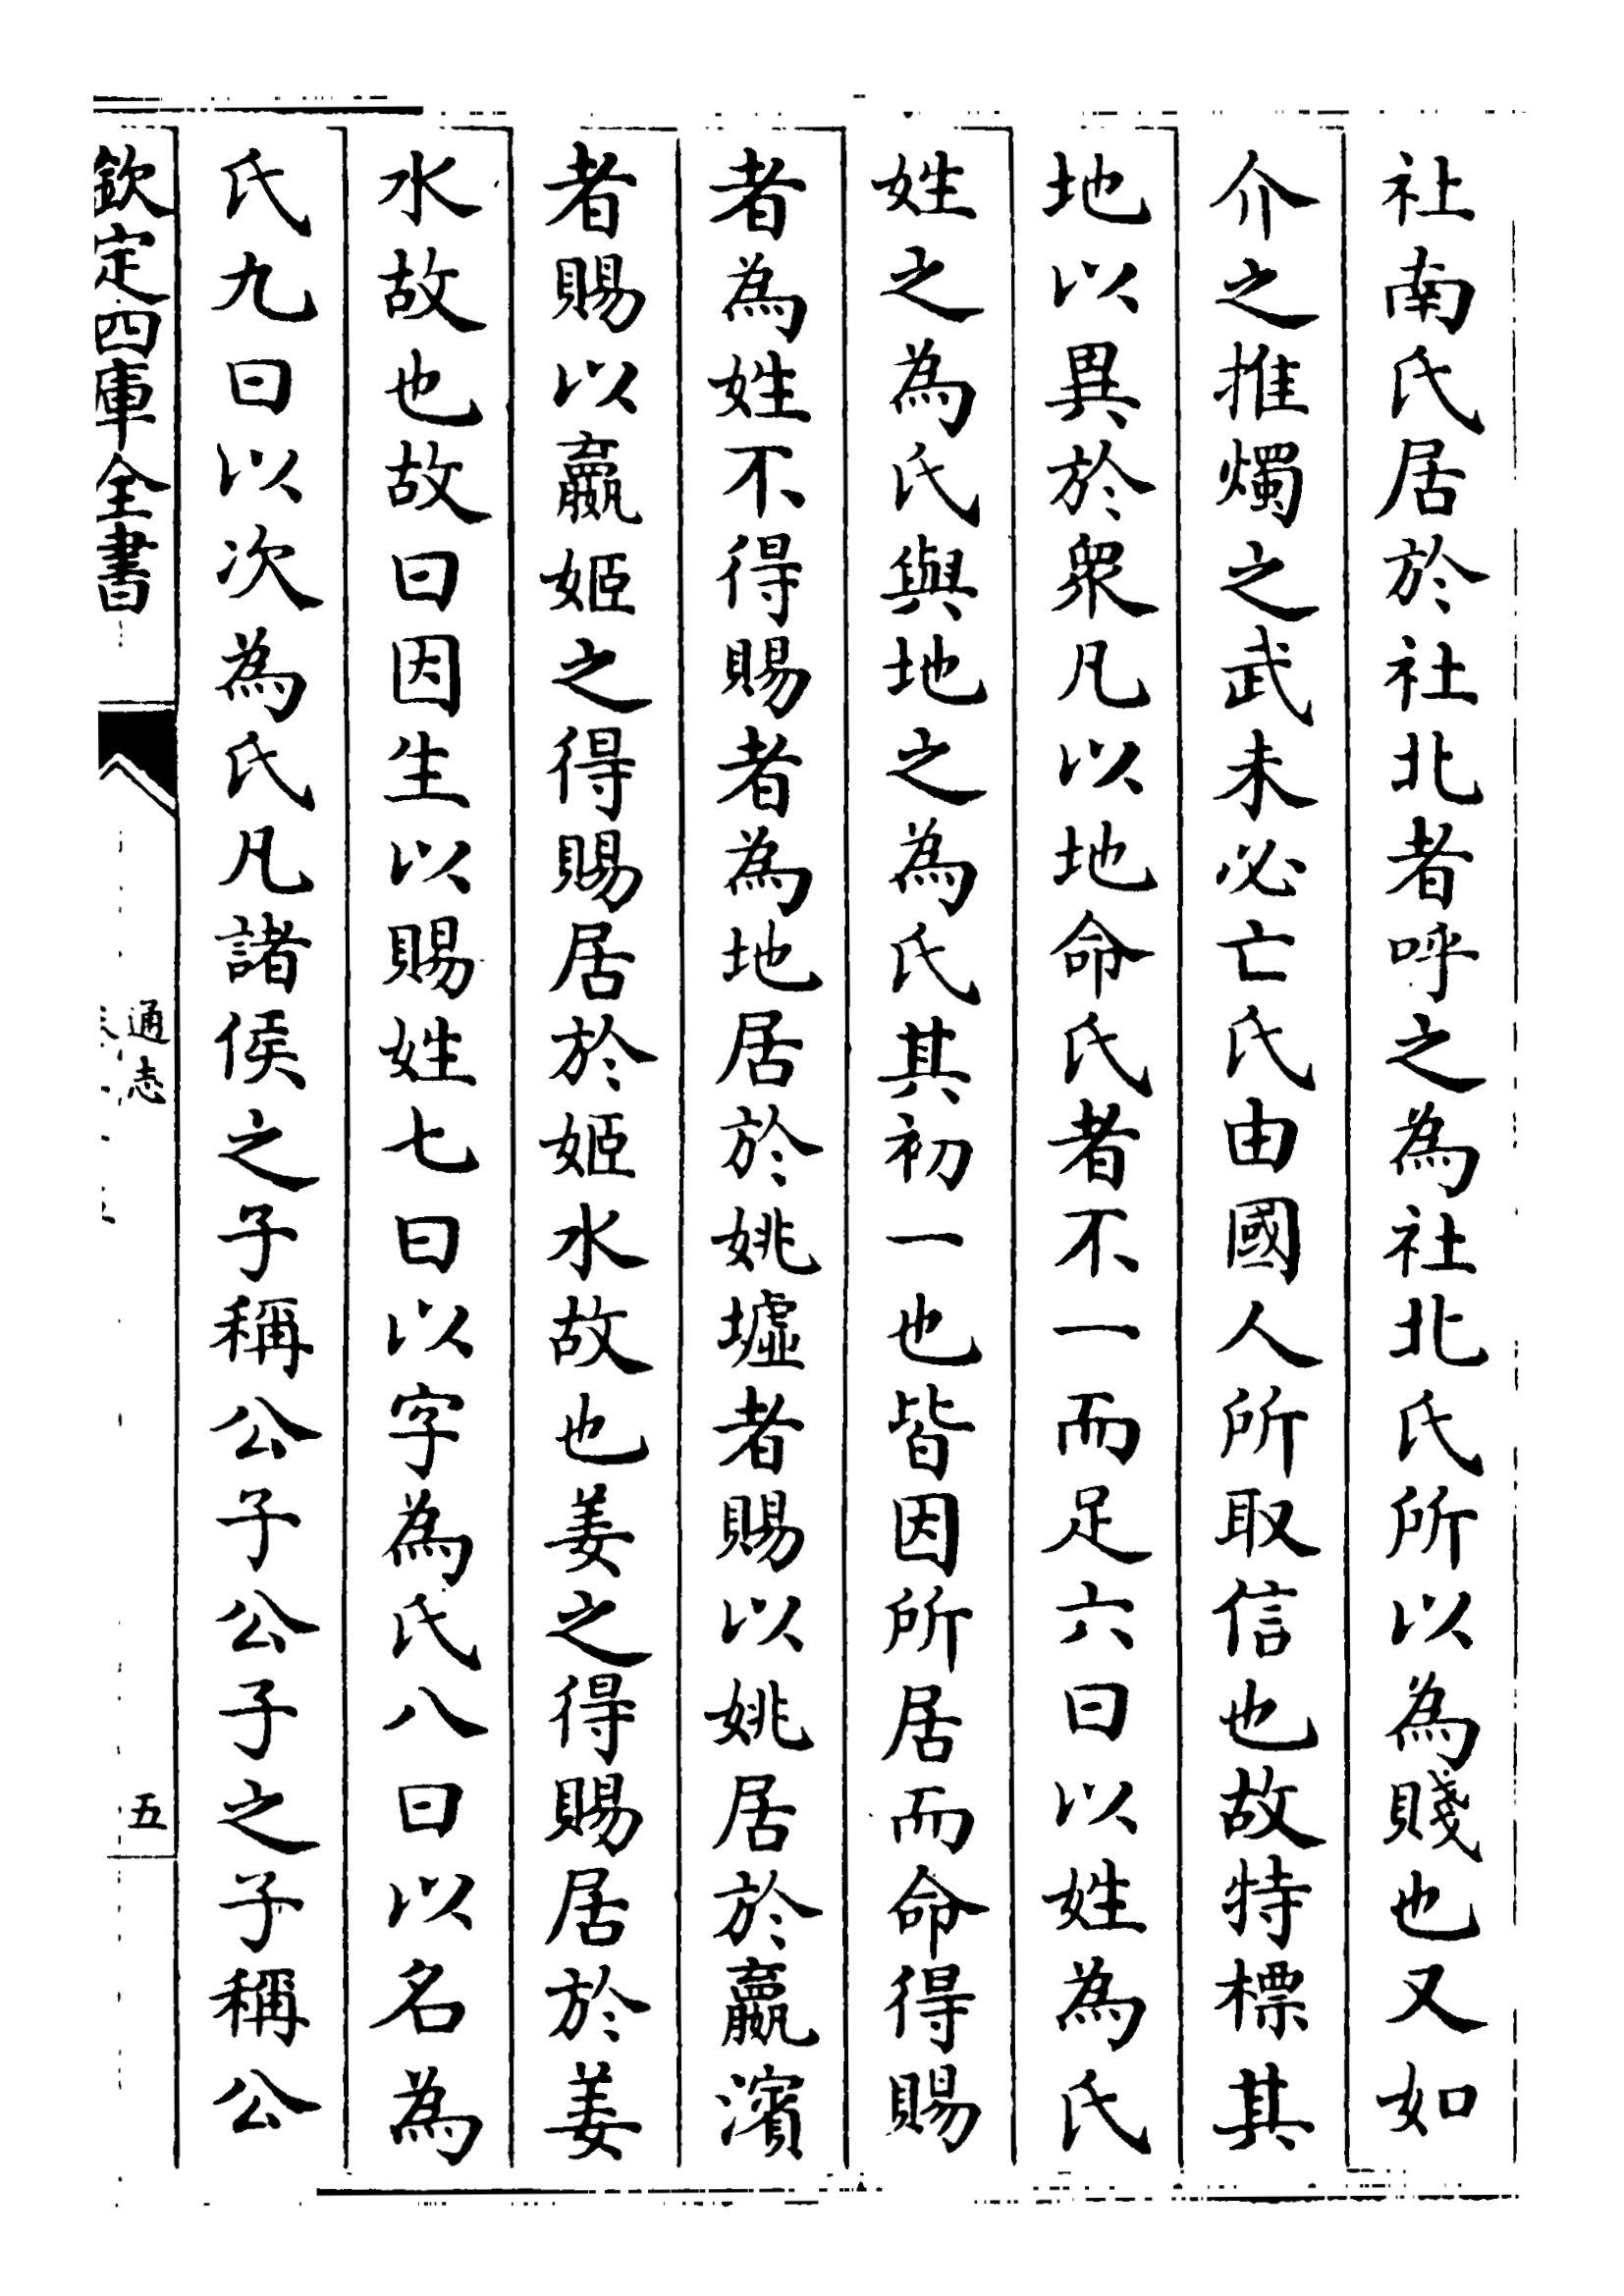 社南氏居於社北者呼之為社北氏所以為賤也又如
介之推燭之武未必亡氏由國人所取信也故特標其
地以異於衆凡以地命氏者不一而足六曰以姓為氏
姓之為氏與地之為氏其初一也皆因所居而命得賜
者為姓不得賜者為地居於姚墟者賜以姚居於嬴濱
者賜以嬴姬之得賜居於姬水故也姜之得賜居於姜
水故也故曰因生以賜姓七曰以字為氏八曰以名為
氏九曰以次為氏凡諸侯之子稱公子公子之子稱公
欽定四庫全書
通志
五